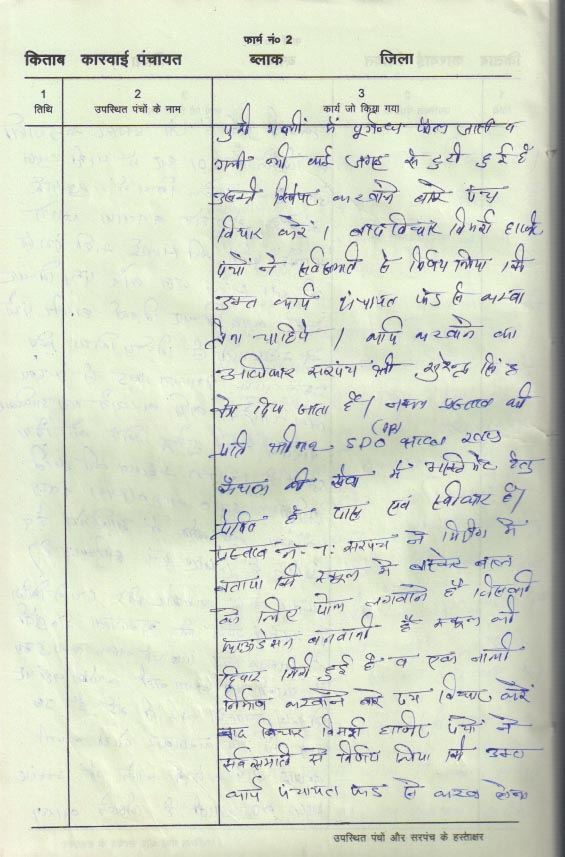 फार्म नं० 2
किताब कारवाई पंचायत ब्लाक जिला
1 2 3
तिथि उपस्थित पंचों के नाम कार्य जो किया गया
में व
गली की कई जगह से टुटी हुई है
उसकी रिपेयर करवाने बारे पंच
विचार करें। बाद विचार विमर्श हाजिर
पंचों ने सर्वसम्मति से निर्णय लिया कि
उक्त कार्य पंचायत फंड से करवा
लेना चाहिये। कार्य करवाने का
अधिकार सरपंच श्री सुरेन्द्र सिंह
को दिया जाता है। नकल प्रस्ताव की
प्रति श्रीमान SDO (PR)
कैथल की सेवा में एस्टिमेट हेतु
प्रेषित है पास एवं स्वीकार है।
प्रस्ताव नं-7: सरपंच ने मिटिंग में
बताया कि स्कूल में बास्केट बाल
के लिए पोल लगवाने है जिसकी
फाउंडेसन बनवानी है स्कूल की
दिवार गिरी हुई है व एक
निर्माण करवाने बारे पंच विचार करें
बाद विचार विमर्श हाजिर पंचों ने
सर्वसम्मति से निर्णय लिया कि उक्त
कार्य पंचायत फंड से करवा लेना
उपस्थित पंचों और सरपंच के हस्ताक्षर